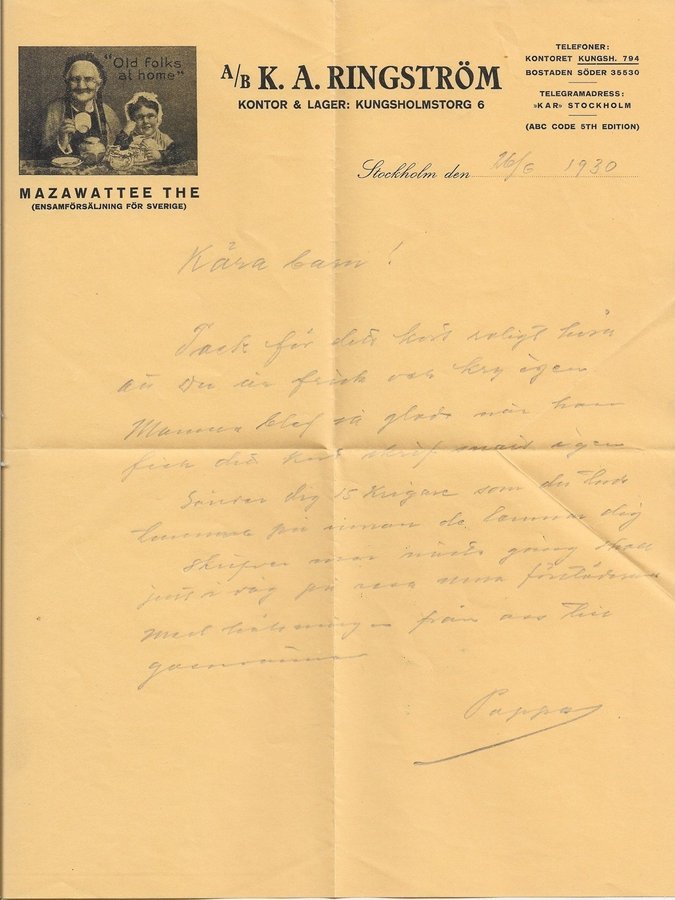 "Old folks
at home"
MAZAWATTEE THE
(ENSAMFÖRSÄLJNING FÖR SVERIGE)
A/B K. A. RINGSTRÖM
KONTOR & LAGER: KUNGSHOLMSTORG 6
TELEFONER:
KONTORET KUNGSH. 794
BOSTADEN SÖDER 35530
TELEGRAMADRESS:
»KAR» STOCKHOLM
(ABC CODE 5TH EDITION)
Stockholm den 26/6 1930
Kära barn!
Tack för ditt kort roligt höra
att Du är frisk och kry igen
Mamma blef så glad när hon
fick ditt kort skrif igen
Sänder dig 15 som du
på innan de lämnar dig
skrifver mer nästa gång skall
just i dag på resa
Med från oss till
Pappa